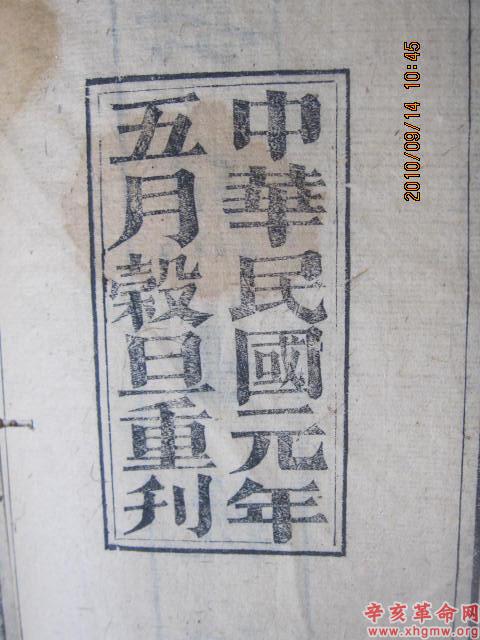 中華民國元年
五月榖旦重刊
2010/09/14 10:45
辛亥革命网
www.xhgmw.org